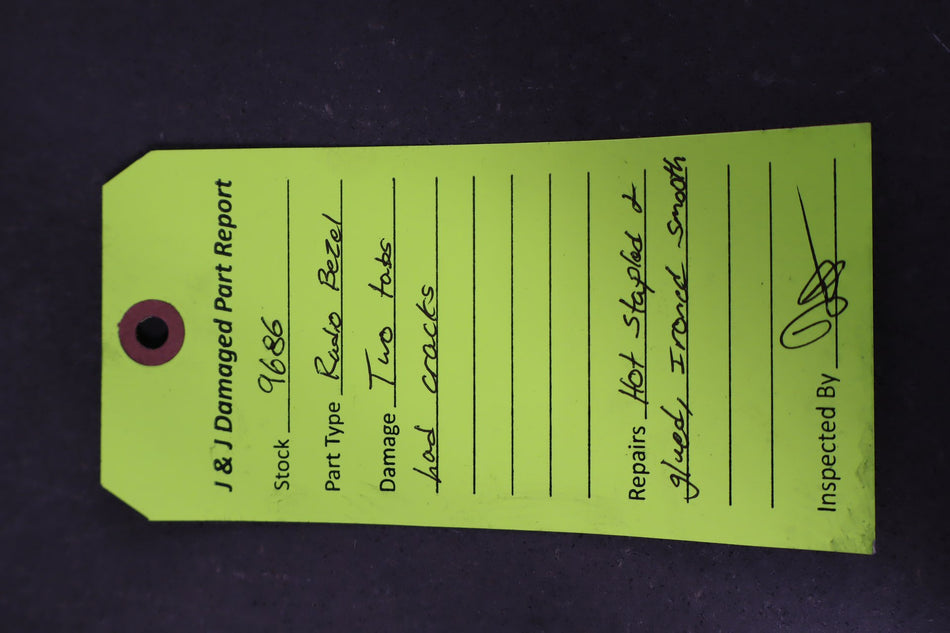 J & J Damaged Part Report
Stock 9686
Part Type Radio Bezel
Damage Two tabs
had cracks
Repairs Hot Stapled &
glued, Ironed smooth
Inspected By